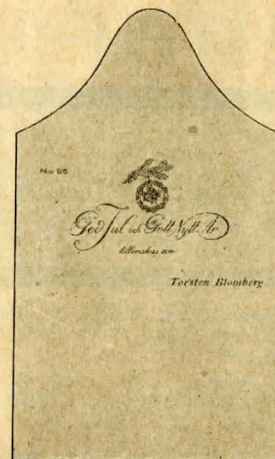 No 95
God Jul och Gott Nytt År
tillönskas av
Torsten Blomberg